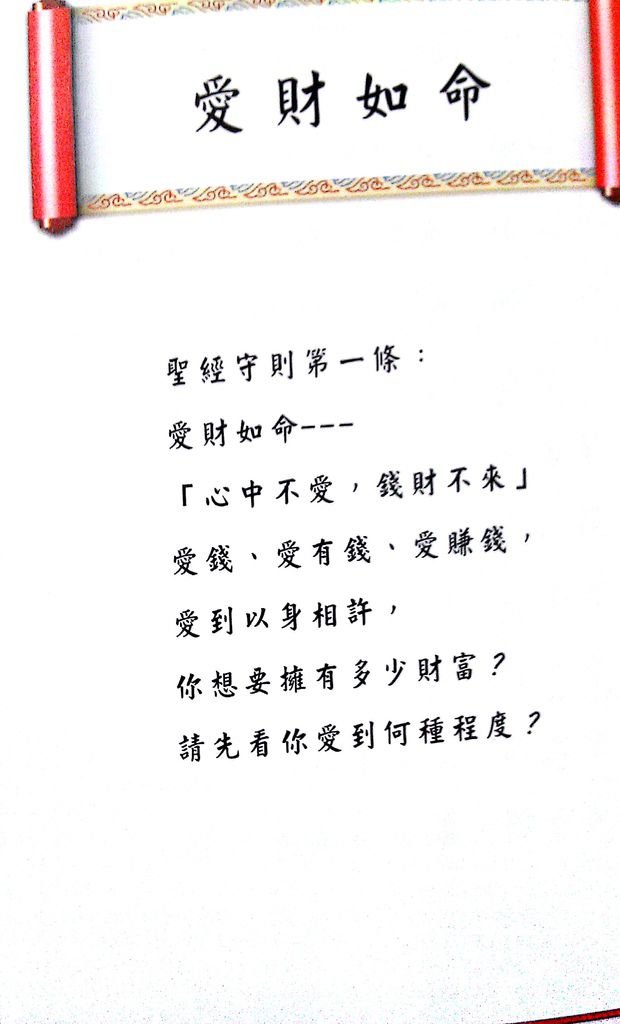 愛財如命
聖經守則第一條：
愛財如命---
「心中不愛，錢財不來」
愛錢、愛有錢、愛賺錢，
愛到以身相許，
你想要擁有多少財富？
請先看你愛到何種程度？